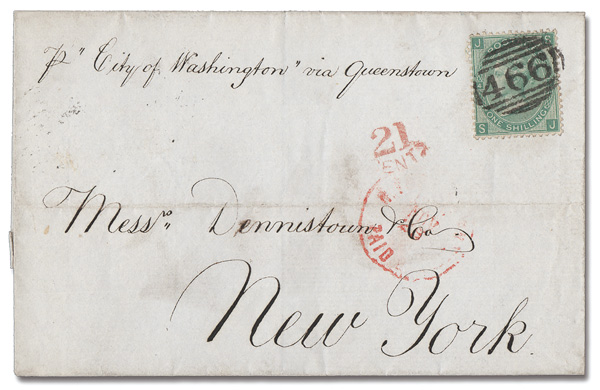 p "City of Washington" via Queenstown
J
466
ONE SHILLING
S J
21
CENTS
PAID
Messrs Dennistoun & Co
New York.